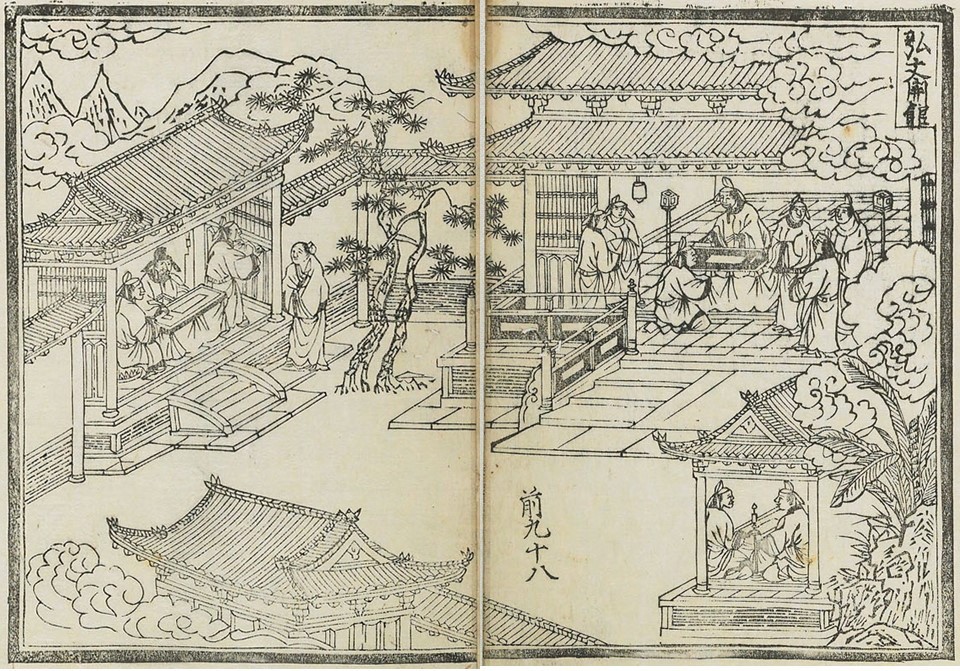 弘文開館
前九十八